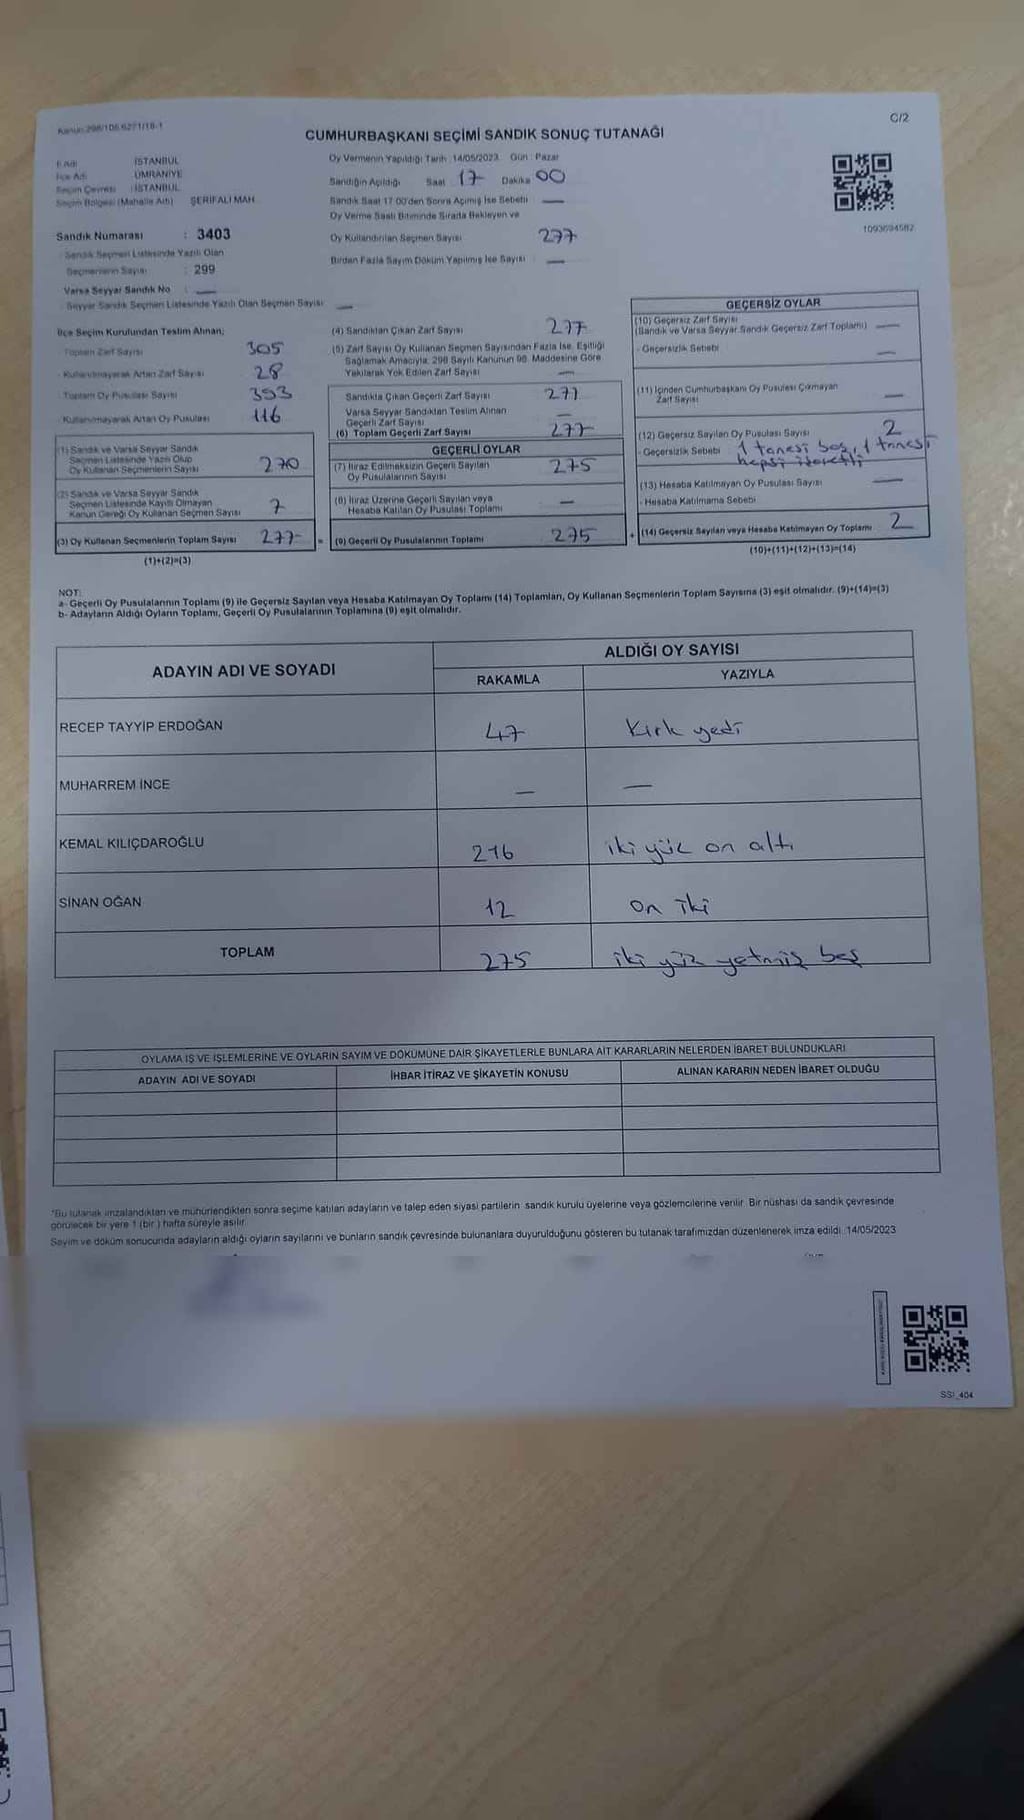 Kanun:298/105,6271/18-1
C/2
CUMHURBAŞKANI SEÇİMİ SANDIK SONUÇ TUTANAĞI
İl Adı : İSTANBUL
İlçe Adı : ÜMRANİYE
Seçim Çevresi : İSTANBUL
Seçim Bölgesi (Mahalle Adı) ŞERİFALİ MAH.
Sandık Numarası : 3403
Sandık Seçmen Listesinde Yazılı Olan
Seçmenlerin Sayısı : 299
Varsa Seyyar Sandık No : —
Seyyar Sandık Seçmen Listesinde Yazılı Olan Seçmen Sayısı —
Oy Vermenin Yapıldığı Tarih :14/05/2023 Gün : Pazar
Sandığın Açıldığı Saat 17 Dakika 00
Sandık Saat 17.00'den Sonra Açımış İse Sebebi —
Oy Verme Saati Bitiminde Sırada Bekleyen ve
Oy Kullandırılan Seçmen Sayısı 277
Birden Fazla Sayım Döküm Yapılmış İse Sayısı —
1093694582
İlçe Seçim Kurulundan Teslim Alınan;
Toplam Zarf Sayısı 305
- Kullanılmayarak Artan Zarf Sayısı 28
Toplam Oy Pusulası Sayısı 393
- Kullanılmayarak Artan Oy Pusulası 116
(1) Sandık ve Varsa Seyyar Sandık
Seçmen Listesinde Yazılı Olup
Oy Kullanan Seçmenlerin Sayısı 270
(2) Sandık ve Varsa Seyyar Sandık
Seçmen Listesinde Kayıtlı Olmayan
Kanun Gereği Oy Kullanan Seçmen Sayısı 7
(3) Oy Kullanan Seçmenlerin Toplam Sayısı 277 =
(1)+(2)=(3)
(4) Sandıktan Çıkan Zarf Sayısı 277
(5) Zarf Sayısı Oy Kullanan Seçmen Sayısından Fazla İse, Eşitliği
Sağlamak Amacıyla, 298 Sayılı Kanunun 98. Maddesine Göre
Yakılarak Yok Edilen Zarf Sayısı —
Sandıkta Çıkan Geçerli Zarf Sayısı 277
Varsa Seyyar Sandıktan Teslim Alınan
Geçerli Zarf Sayısı —
(6) Toplam Geçerli Zarf Sayısı 277
GEÇERLİ OYLAR
(7) İtiraz Edilmeksizin Geçerli Sayılan
Oy Pusulalarının Sayısı 275
(8) İtiraz Üzerine Geçerli Sayılan veya
Hesaba Katılan Oy Pusulası Toplamı —
(9) Geçerli Oy Pusulalarının Toplamı 275 +
GEÇERSİZ OYLAR
(10) Geçersiz Zarf Sayısı
(Sandık ve Varsa Seyyar Sandık Geçersiz Zarf Toplamı) —
- Geçersizlik Sebebi —
(11) İçinden Cumhurbaşkanı Oy Pusulası Çıkmayan
Zarf Sayısı —
(12) Geçersiz Sayılan Oy Pusulası Sayısı 2
- Geçersizlik Sebebi 1 tanesi boş, 1 tanesi
hepsi işaretli
(13) Hesaba Katılmayan Oy Pusulası Sayısı —
- Hesaba Katılmama Sebebi
(14) Geçersiz Sayılan veya Hesaba Katılmayan Oy Toplamı 2
(10)+(11)+(12)+(13)=(14)
NOT:
a- Geçerli Oy Pusulalarının Toplamı (9) ile Geçersiz Sayılan veya Hesaba Katılmayan Oy Toplamı (14) Toplamları, Oy Kullanan Seçmenlerin Toplam Sayısına (3) eşit olmalıdır. (9)+(14)=(3)
b- Adayların Aldığı Oyların Toplamı, Geçerli Oy Pusulalarının Toplamına (9) eşit olmalıdır.
ADAYIN ADI VE SOYADI
ALDIĞI OY SAYISI
RAKAMLA YAZIYLA
RECEP TAYYİP ERDOĞAN 47 Kırk yedi
MUHARREM İNCE — —
KEMAL KILIÇDAROĞLU 216 iki yüz on altı
SİNAN OĞAN 12 on iki
TOPLAM 275 iki yüz yetmiş beş
OYLAMA İŞ VE İŞLEMLERİNE VE OYLARIN SAYIM VE DÖKÜMÜNE DAİR ŞİKAYETLERLE BUNLARA AİT KARARLARIN NELERDEN İBARET BULUNDUKLARI
ADAYIN ADI VE SOYADI İHBAR İTİRAZ VE ŞİKAYETİN KONUSU ALINAN KARARIN NEDEN İBARET OLDUĞU
*Bu tutanak imzalandıktan ve mühürlendikten sonra seçime katılan adayların ve talep eden siyasi partilerin sandık kurulu üyelerine veya gözlemcilerine verilir. Bir nüshası da sandık çevresinde
görülecek bir yere 1 (bir ) hafta süreyle asılır.
Sayım ve döküm sonucunda adayların aldığı oyların sayılarını ve bunların sandık çevresinde bulunanlara duyurulduğunu gösteren bu tutanak tarafımızdan düzenlenerek imza edildi. 14/05/2023
SSİ_404